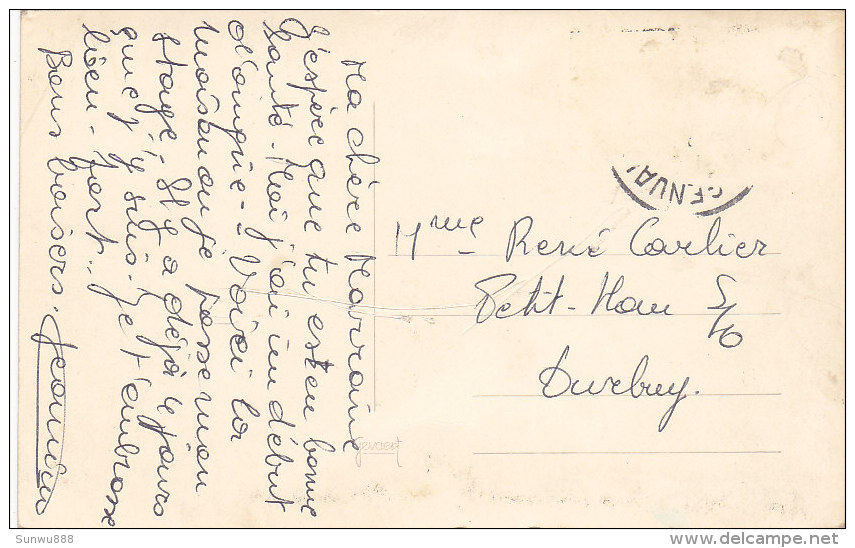 Ma chère Marraine
J'espère que tu es en bonne
santé. Moi j'ai un début
d'angine. Voici la
maison où je passe mon
stage. Il y a déjà 4 jours
que j'y suis. Je t'embrasse
bien fort..
Bons baisers.
Mme René Carlier
Petit-Han S/O
Durbuy.
Gevaert
Sunwu888
delcampe.net